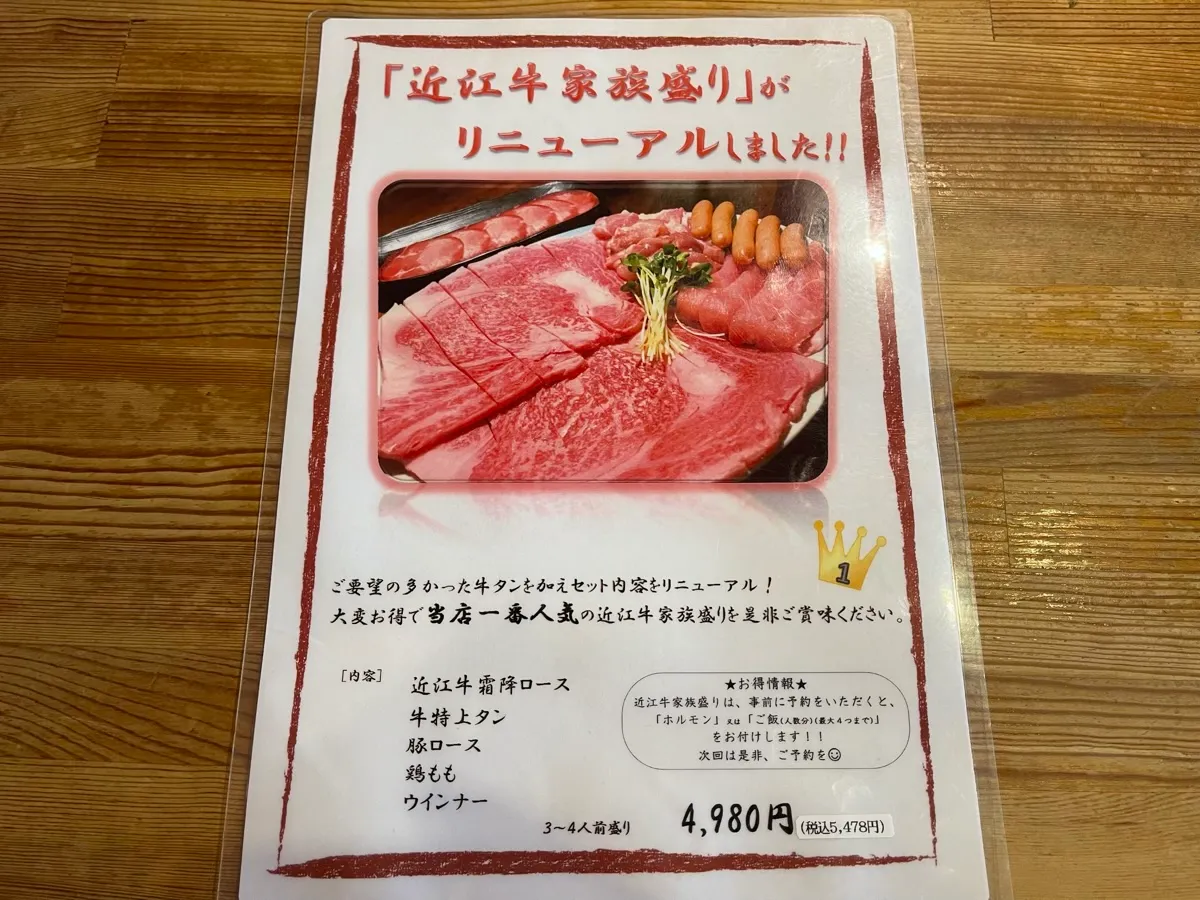 「近江牛家族盛り」が
リニューアルしました!!
1
ご要望の多かった牛タンを加えセット内容をリニューアル！
大変お得で当店一番人気の近江牛家族盛りを是非ご賞味ください。
[内容]
近江牛霜降ロース
牛特上タン
豚ロース
鶏もも
ウインナー
★お得情報★
近江牛家族盛りは、事前に予約をいただくと、
「ホルモン」又は「ご飯(人数分)(最大４つまで)」
をお付けします！！
次回は是非、ご予約を☺
3～4人前盛り
4,980円(税込5,478円)